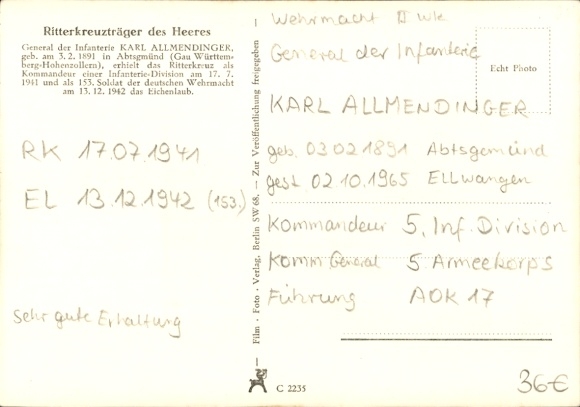 Ritterkreuzträger des Heeres
General der Infanterie KARL ALLMENDINGER,
geb. am 3. 2. 1891 in Abtsgmünd (Gau Württem-
berg-Hohenzollern), erhielt das Ritterkreuz als
Kommandeur einer Infanterie-Division am 17. 7.
1941 und als 153. Soldat der deutschen Wehrmacht
am 13. 12. 1942 das Eichenlaub.
RK 17.07.1941
EL 13.12.1942 (153.)
Sehr gute Erhaltung
Film-Foto-Verlag, Berlin SW 68, — Zur Veröffentlichung freigegeben —
C 2235
Wehrmacht II Wk
General der Infanterie
Echt Photo
KARL ALLMENDINGER
geb. 03 02 1891 Abtsgemünd
gest 02.10.1965 Ellwangen
Kommandeur 5. Inf. Division
Komm General 5 Armeekorps
Führung AOK 17
36€